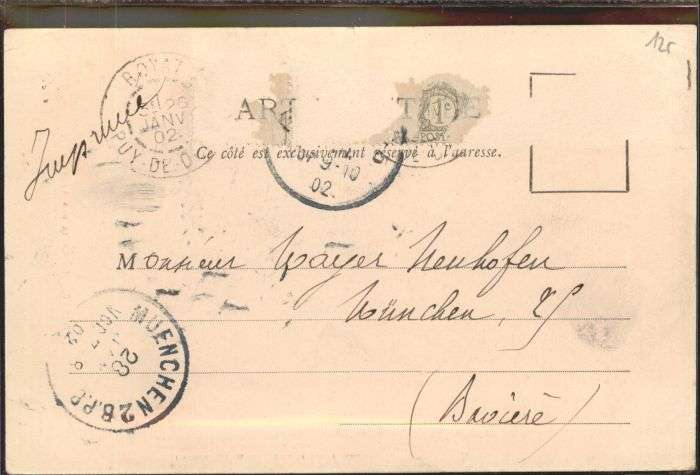 125
ROYAT
26
JANV
02
PUY-DE-D
Imprimé
ART
1c
POST
Ce côté est exclusivement réservé à l'adresse.
9-10
02.
Monsieur Mayer Neuhofen
München, 25
(Bavière)
MUENCHEN 2 B.P.P.
28
02